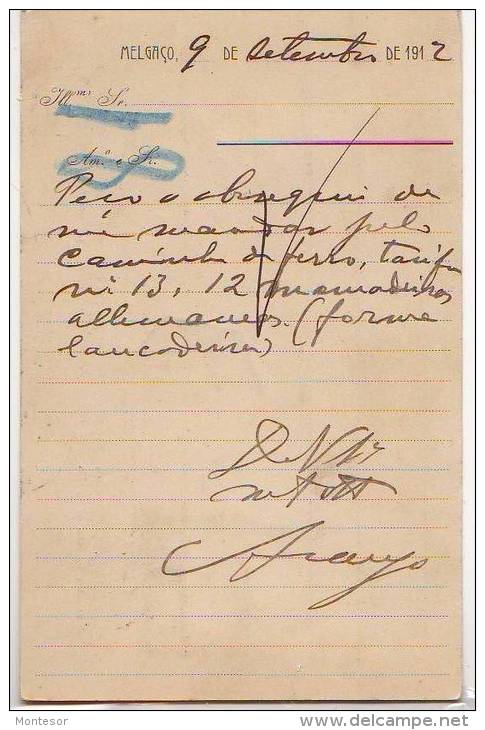 MELGAÇO, 9 DE Setembro DE 1912
Ill.mo Sr.
Am.o e Sr.
Peço o obsequio de
me mandar pelo
Caminho de ferro, tarifa
nº 13, 12 mamadeiras
allemanas. (forme
lançadeiras)
Araujo
Montesor
http://www.delcampe.net